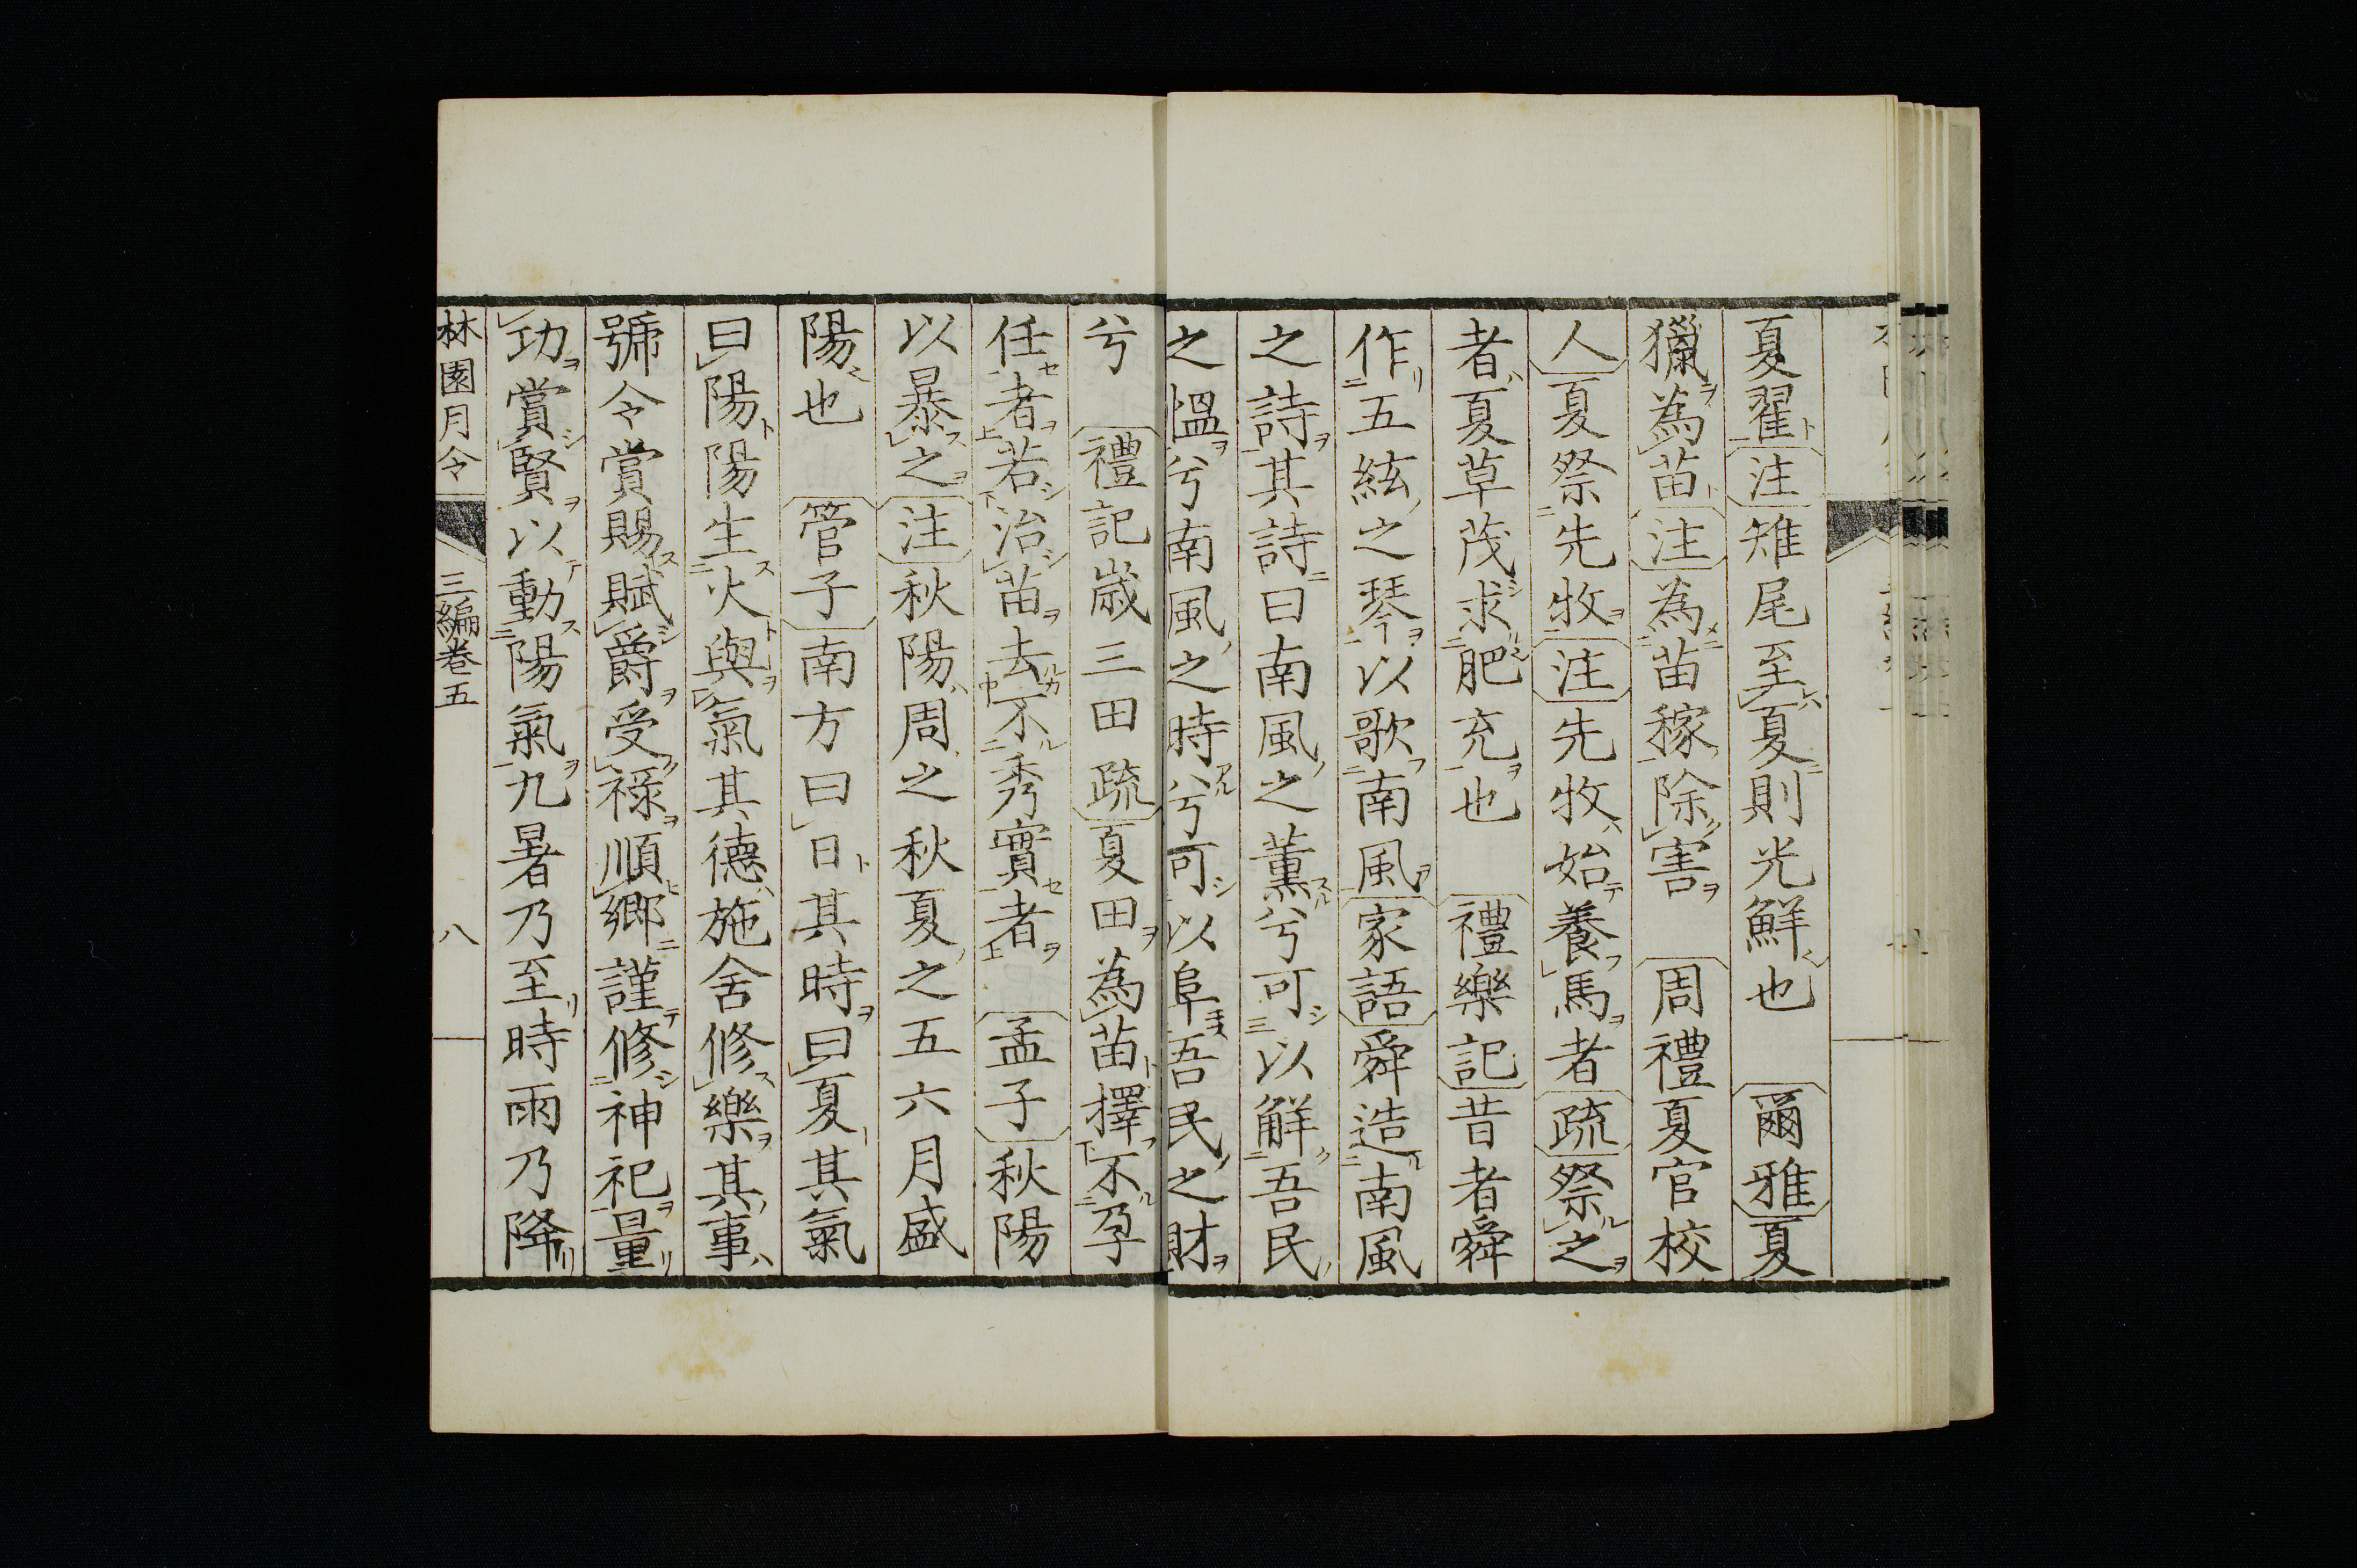 夏翟注雉尾至夏則光鮮也　爾雅夏
獵為苗注為苗稼除害　周禮夏官校
人夏祭先牧注先牧始養馬者疏祭之
者夏草茂求肥充也　禮樂記昔者舜
作五絃之琴以歌南風家語舜造南風
之詩其詩曰南風之薰兮可以解吾民
之慍兮南風之時兮可以阜吾民之財
兮　禮記歲三田疏夏田為苗擇不孕
任者若治苗去不秀實者　孟子秋陽
以暴之注秋陽周之秋夏之五六月盛
陽也　管子南方曰日其時曰夏其氣
曰陽陽生火與氣其德施舍修樂其事
號令賞賜賦爵受祿順鄉謹修神祀量
功賞賢以動陽氣九暑乃至時雨乃降
林園月令　三編卷五　八